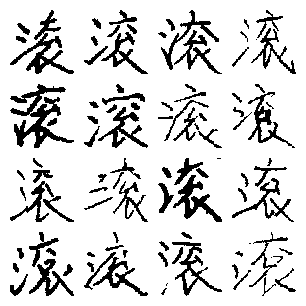 滚滚滚滚
滚滚滚滚
滚滚滚滚
滚滚滚滚